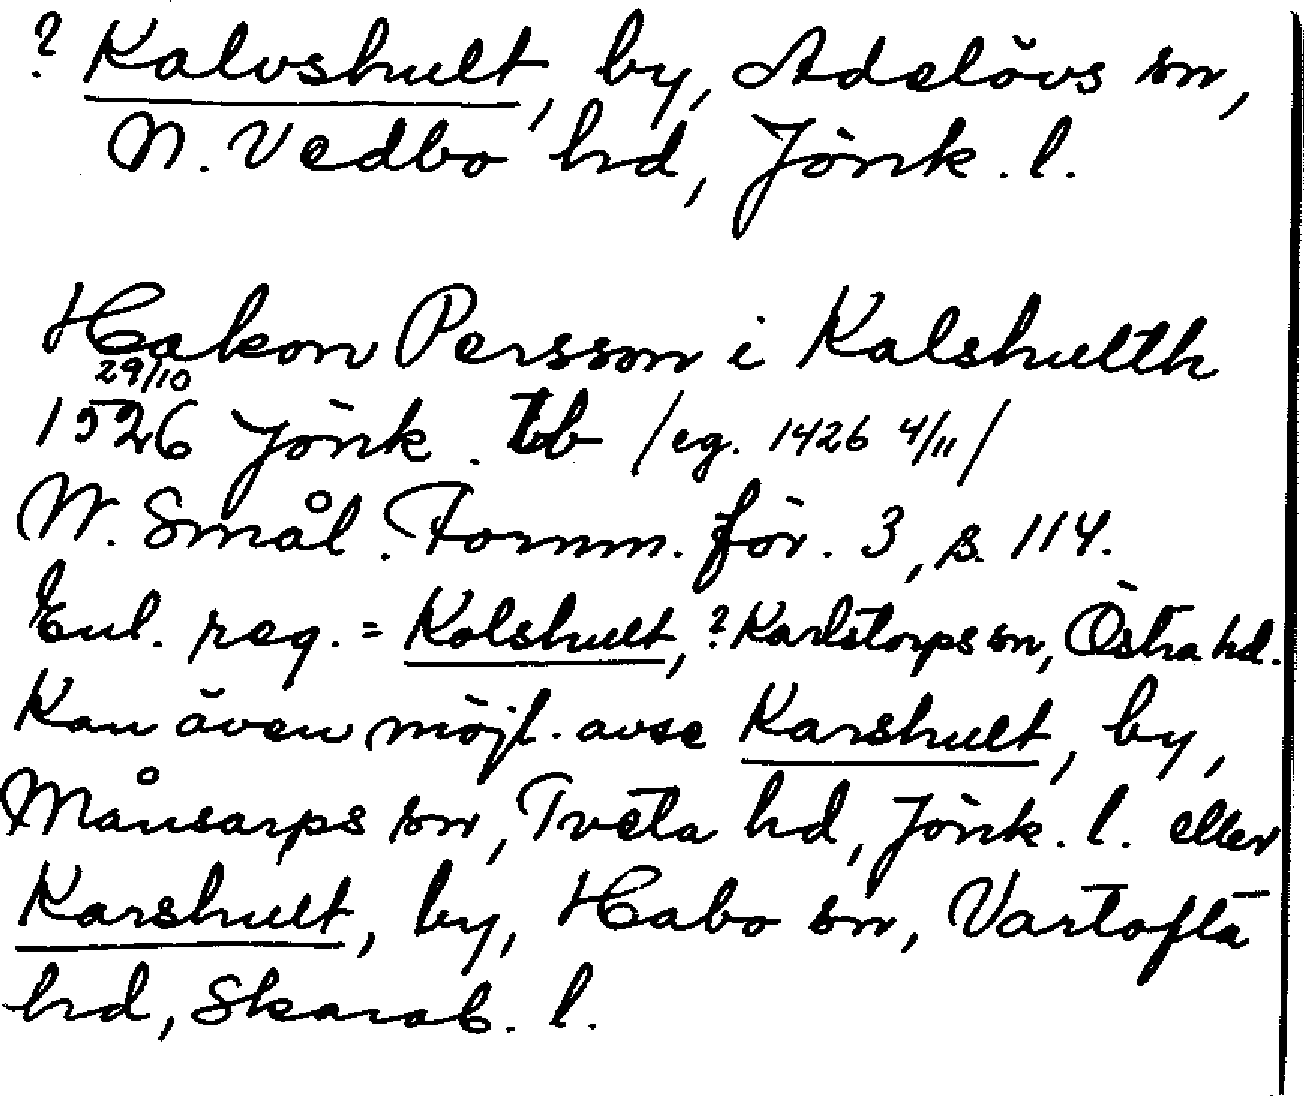 ? Kalvshult, by, Adelövs sn,
N. Vedbo hd, Jönk. l.
Hakon Persson i Kalshulth
29/10
1526 Jönk. tb /eg. 1426 4/11/
N. Smål. Fornm. för. 3, s. 114.
Enl. reg. = Kolshult, ? Karlstorps sn, Östra hd.
Kan även möjl. avse Karshult, by,
Månsarps sn, Tveta hd, Jönk. l. eller
Karshult, by, Habo sn, Vartofta
hd, Skarab. l.